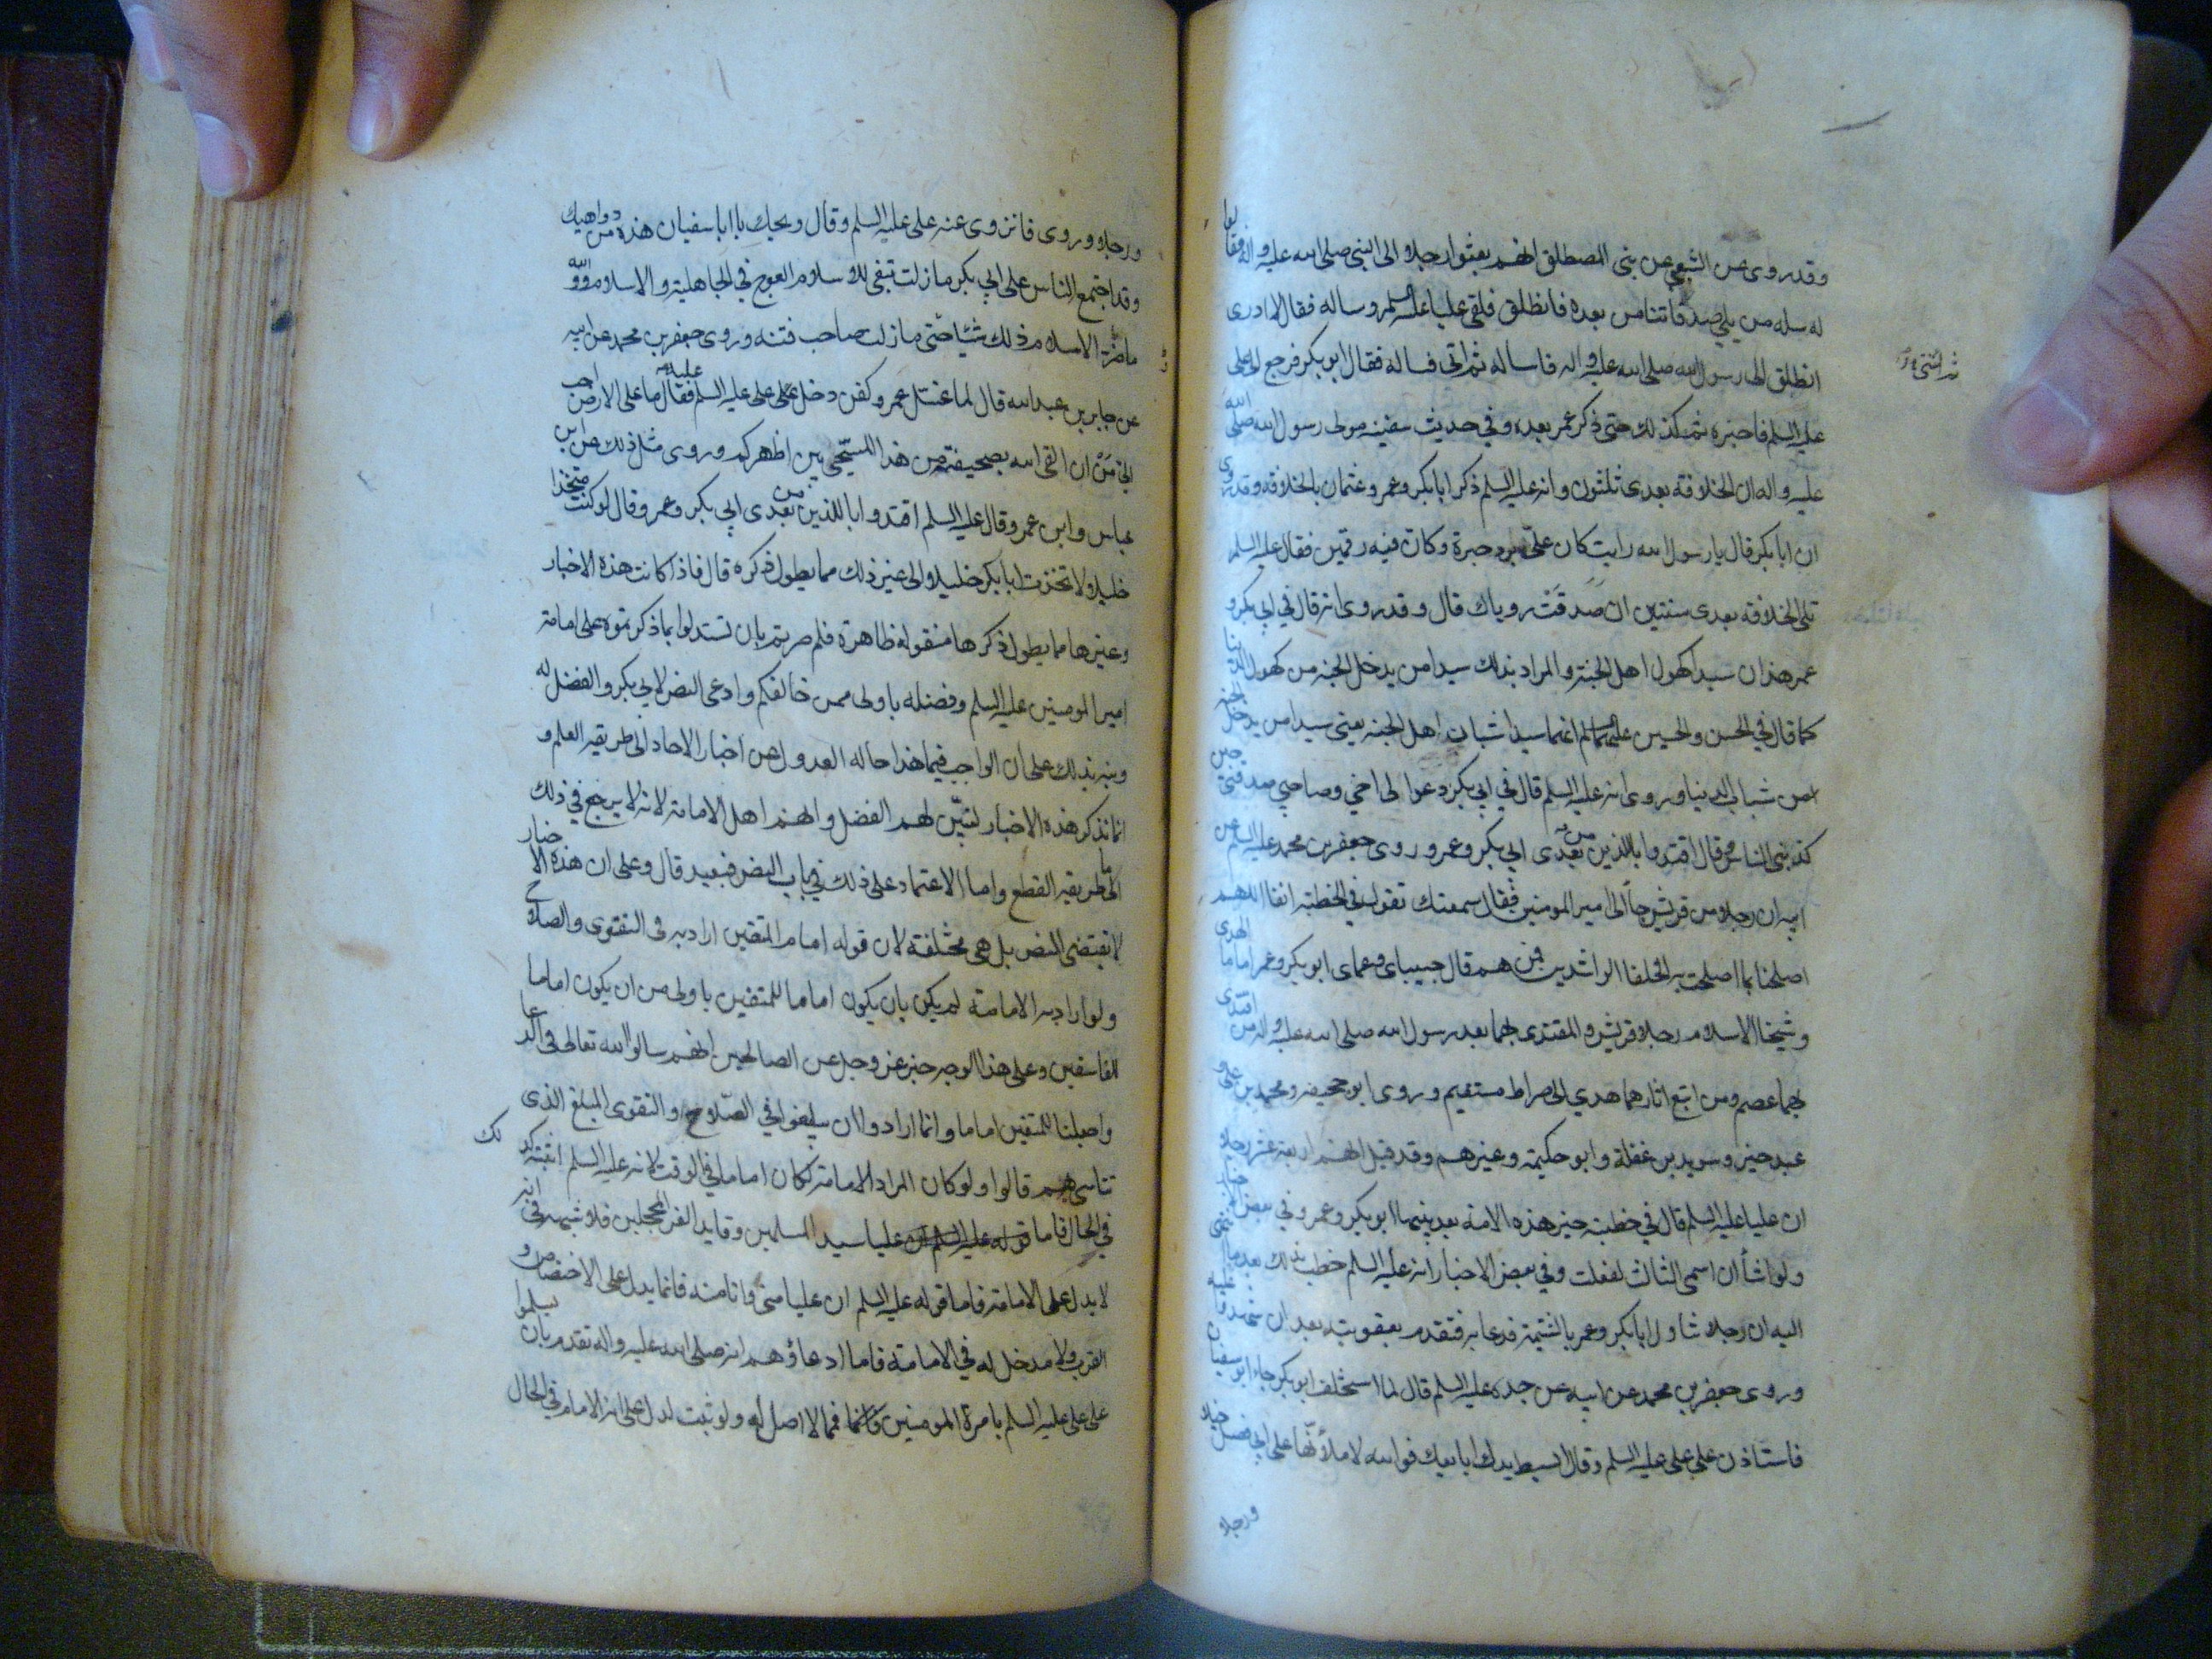 وقد روى عن الشعبي عن بنى المصطلق انهم بعثوا رجلا الى النبى صلى الله عليه واله فقالوا
له سله من يلي صدقاتنا من بعده فانطلق فلقى عليا عليه السلم وساله فقال لا ادرى
انطلق الى رسول الله صلى الله عليه واله فاساله ثم ائتى فساله فقال ابو بكر فرجع الى على
عليه السلم فاخبره ثم كذلك حتى ذكر عمر بعده وفي حديث سفينه مولى رسول الله صلى الله
عليه واله ان الخلافة بعدى ثلثون وانه عليه السلم ذكر ابا بكر وعمر وعثمان بالخلافه وقد روى
ان ابا بكر قال يا رسول الله رايت كان على برد حبرة وكان فيه رقمين فقال عليه السلم
تلى الخلافه بعدى سنتين ان صدقت روياك قال وقد روى انه قال في ابى بكر و
عمر هذان سيدا كهول اهل الجنة والمراد بذلك سيدا من يدخل الجنه من كهول الدنيا
كما قال في الحسن والحسين عليهما السلم انهما سيدا شباب اهل الجنه يعنى سيدا من يدخل الجنه
من شباب الدنيا وروى انه عليه السلم قال في ابى بكر دعوا لى اخى وصاحبي صدقنى حين
كذبنى الناس وقال اقتدوا باللذين من بعدى ابى بكر وعمر وروى جعفر بن محمد عليه السلم عن
ابيه ان رجلا من قريش جاء الى امير المومنين فقال سمعتك تقول في الخطبة انفا اللهم
اصلحنا بما اصلحت به الخلفا الراشدين فمن هم قال حبيباى وعماى ابو بكر وعمر اماما الهدى
وشيخا الاسلام رجلا قريش والمقتدى بهما بعد رسول الله صلى الله عليه واله من اقتدى
بهما عصم ومن اتبع اثارهما هدي الى صراط مستقيم وروى ابو جحيفه ومحمد بن على و
عبد خير وسويد بن غفلة وابو حكيمة وغيرهم وقد قيل انهم اربعة عشر رجلا
ان عليا عليه السلم قال في خطبته خير هذه الامة بعد نبيها ابو بكر وعمر وفي بعض الاخبار
ولو اشأ ان اسمى الثالث لفعلت وفي بعض الاخبار انه عليه السلم خطب بذلك بعد ما انتهى
اليه ان رجلا تناول ابا بكر وعمر بالشتيمة فدعا به فتقدم بعقوبته بعد ان شهدوا عليه
وروى جعفر بن محمد عن ابيه عن جده عليه السلم قال لما استخلف ابو بكر جاء ابو سفيان
فاستاذن على على عليه السلم وقال ابسط يدك ابايعك فوالله لاملأنها على ابى فصيل خيلا
ورجلا
ورجلا وروى فانزوى عنه على عليه السلم وقال ويحك يا ابا سفيان هذه من دواهيك
وقد اجتمع الناس على ابي بكر ما زلت تبغى للاسلام العوج في الجاهلية والاسلام ووالله
ما ضر الاسلام ذلك شيئا حتى ما زلت صاحب فتنه وروى جعفر بن محمد عن ابيه
عن جابر بن عبد الله قال لما غسل عمر وكفن دخل على على عليه السلم فقال ما على الارض احب
الى من ان القى الله بصحيفته من هذا المسجى بين اظهركم وروى مثل ذلك عن ابن
عباس وابن عمر وقال عليه السلم اقتدوا باللذين من بعدى ابي بكر وعمر وقال لو كنت متخذا
خليلا لاتخذت ابا بكر خليلا والى غير ذلك مما يطول ذكره قال فاذا كانت هذه الاخبار
وغيرها مما يطول ذكرها منقوله ظاهرة فلم صرتم بان تستدلوا بما ذكرتموه على امامة
امير المومنين عليه السلم وفضله باولى ممن خالفكم وادعى النص لابي بكر والفضل له
ونبه بذلك على ان الواجب فيما هذا حاله العدول عن اخبار الاحاد الى طريقه العلم و
انما نذكر هذه الاخبار لنبين لهم الفضل وانهم اهل الامامة لانه لا يرجع في ذلك
الى طريقه القطع واما الاعتماد على ذلك في باب النص فبعيد قال وعلى ان هذه الاخبار
لا تقتضى النص بل هى مختلفة لان قوله امام المتقين اراد به فى التقوى والصلاح
ولو اراد به الامامة لم يكن بان يكون اماما للمتقين باولى من ان يكون اماما
للفاسقين وعلى هذا الوجه خبر عز وجل عن الصالحين انهم سالوا الله تعالى فى الدعا
واجعلنا للمتقين اماما وانما ارادوا ان يبلغوا في الصلاح والتقوى المبلغ الذى
تتاسى بهم قالوا ولو كان المراد الامامة لكان اماما في الوقت لانه عليه السلم اثبته كذلك
في الحال فاما قوله عليه السلم ان عليا سيد المسلمين وقايد الغر المحجلين فلا شبهه فى انه
لا يدل على الامامة فاما قوله عليه السلم ان عليا منى وانا منه فانما يدل على الاختصاص و
القرب ولا مدخل له في الامامة فاما ادعاؤهم انه صلى الله عليه واله تقدم بان يسلموا
على على عليه السلم بامرة المومنين فمما لا اصل له ولو ثبت لدل على انه الامام في الحال